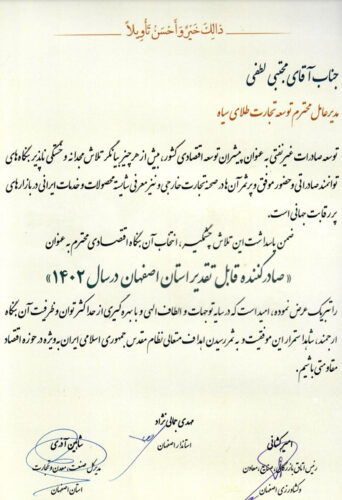 ذَالِكَ خَيْرٌ وَأَحْسَنُ تَأْوِيلاً
جناب آقای مجتبی لطفی
مدیرعامل محترم توسعه تجارت طلای سیاه
توسعه صادرات غیرنفتی به عنوان پیشران توسعه اقتصادی کشور، بیش از هر چیز بیانگر تلاش مجدانه و خستگی ناپذیر بنگاه‌های
توانمند صادراتی و حضور موفق و پرثمر آن‌ها در صحنه تجارت خارجی و نیز معرفی شایسته محصولات و خدمات ایرانی در بازارهای
پر رقابت جهانی است.
ضمن پاسداشت این تلاش چشمگیر، انتخاب آن بنگاه اقتصادی محترم به عنوان
« صادرکننده قابل تقدیر استان اصفهان در سال ۱۴۰۲ »
را تبریک عرض نموده، امید است که در سایه توجهات و الطاف الهی و با بهره گیری از حداکثر توان و ظرفیت آن بنگاه
ارجمند، شاهد استمرار این موفقیت و به ثمر رسیدن اهداف متعالی نظام مقدس جمهوری اسلامی ایران به ویژه در حوزه اقتصاد
مقاومتی باشیم.
امیر کشانی
رئیس اتاق بازرگانی، صنایع، معادن
و کشاورزی اصفهان
مهدی جمالی نژاد
استاندار اصفهان
شاهین آذری
مدیرکل صنعت، معدن و تجارت
استان اصفهان